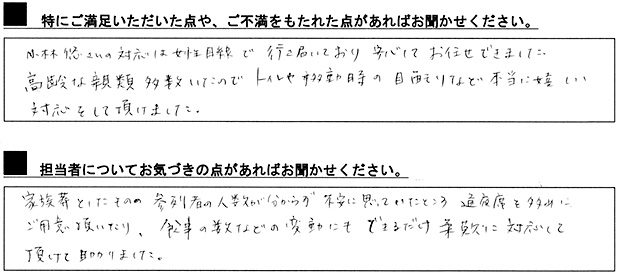 ■ 特にご満足いただいた点や、ご不満をもたれた点があればお聞かせください。
小林悠さんの対応は女性目線で行き届いており安心してお任せできました。
高齢な親類多数いたのでトイレや移動時の目配りなど本当に嬉しい
対応をして頂けました。
■ 担当者についてお気づきの点があればお聞かせください。
家族葬としたものの参列者の人数が分からず不安に思っていたところ通夜席を多めに
ご用意頂いたり、食事の数などの変動にもできるだけ柔軟に対応して
頂けて助かりました。